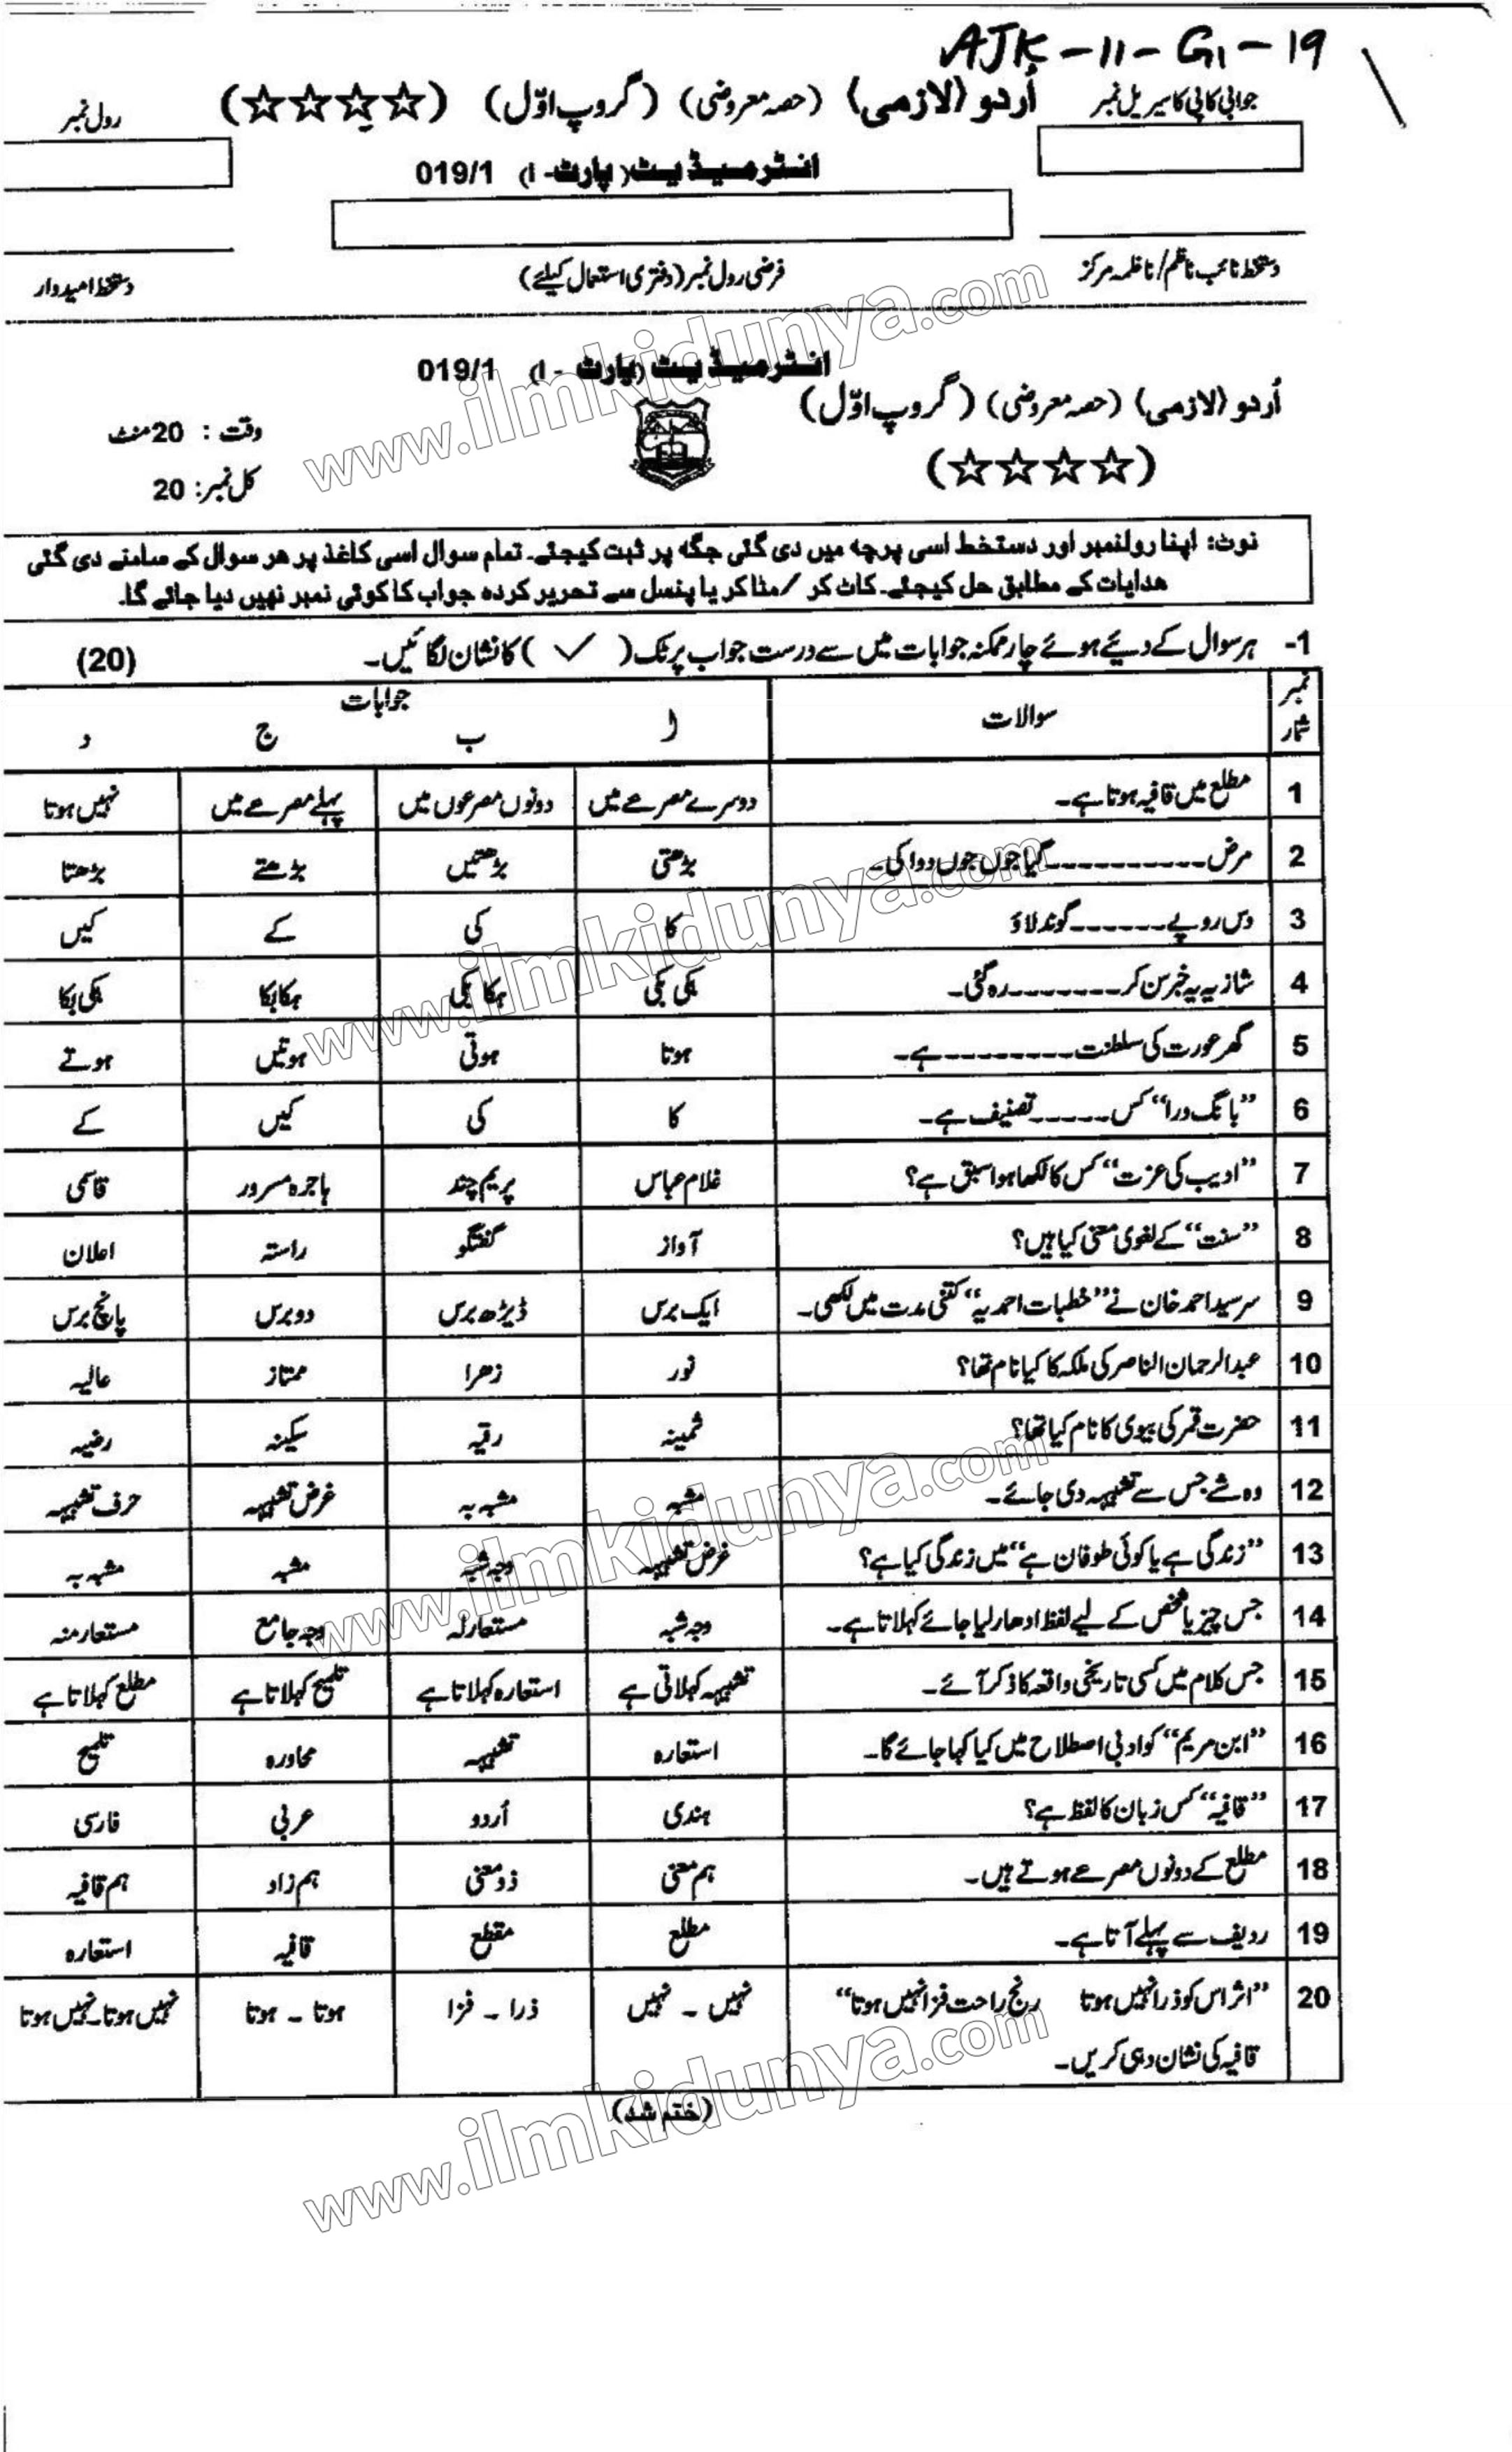 AJK-11-G1-19
جوابی کاپی کا سیریل نمبر اُردو (لازمی) (حصہ معروضی) (گروپ اوّل) (☆☆☆☆) رول نمبر
انٹرمیڈیٹ (پارٹ-I) 019/1
دستخط نائب ناظم/ناظمہ مرکز فرضی رول نمبر (دفتری استعمال کیلئے) دستخط امیدوار
انٹرمیڈیٹ (پارٹ-I) 019/1
اُردو (لازمی) (حصہ معروضی) (گروپ اوّل)
وقت: 20 منٹ
(☆☆☆☆)
کل نمبر: 20
نوٹ: اپنا رولنمبر اور دستخط اسی پرچہ میں دی گئی جگہ پر ثبت کیجئے۔ تمام سوال اسی کاغذ پر ھر سوال کے سامنے دی گئی
ھدایات کے مطابق حل کیجئے۔ کاٹ کر /مٹا کر یا پنسل سے تحریر کردہ جواب کا کوئی نمبر نہیں دیا جائے گا۔
1- ہر سوال کے دیئے ہوئے چار ممکنہ جوابات میں سے درست جواب پر ٹک (✓) کا نشان لگائیں۔ (20)
نمبر شمار سوالات جوابات
ا ب ج د
1 مطلع میں قافیہ ہوتا ہے۔ دوسرے مصرعے میں دونوں مصرعوں میں پہلے مصرعے میں نہیں ہوتا
2 مرض ---------- گیا جوں جوں دوا کی۔ بڑھتی بڑھتیں بڑھتے بڑھتا
3 دس روپے ------ گوند لاؤ کا کی کے کیں
4 شازیہ یہ خبر سن کر ------- رہ گئی۔ ہکی بکی ہکا بکی ہکا بکا ہکی بکا
5 گھر عورت کی سلطنت --------- ہے۔ ہوتا ہوتی ہوتیں ہوتے
6 ”بانگ درا“ کس ----- تصنیف ہے۔ کا کی کیں کے
7 ”ادیب کی عزت“ کس کا لکھا ہوا سبق ہے؟ غلام عباس پریم چند ہاجرہ مسرور قاسمی
8 ”سنت“ کے لغوی معنی کیا ہیں؟ آواز گفتگو راستہ اعلان
9 سرسید احمد خان نے ”خطبات احمدیہ“ کتنی مدت میں لکھی۔ ایک برس ڈیڑھ برس دو برس پانچ برس
10 عبدالرحمان الناصر کی ملکہ کا کیا نام تھا؟ نور زھرا ممتاز عالیہ
11 حضرت قمر کی بیوی کا نام کیا تھا؟ ثمینہ رقیہ سکینہ رضیہ
12 وہ شے جس سے تشبیہہ دی جائے۔ مشبہ مشبہ بہ غرض تشبیہہ حرف تشبیہہ
13 ”زندگی ہے یا کوئی طوفان ہے“ میں زندگی کیا ہے؟ غرض تشبیہہ وجہ شبہ مشبہ مشبہ بہ
14 جس چیز یا شخص کے لیے لفظ ادھار لیا جائے کہلاتا ہے۔ وجہ شبہ مستعار لہ وجہ جامع مستعار منہ
15 جس کلام میں کسی تاریخی واقعہ کا ذکر آئے۔ تشبیہہ کہلاتی ہے استعارہ کہلاتا ہے تلمیح کہلاتا ہے مطلع کہلاتا ہے
16 ”ابن مریم“ کو ادبی اصطلاح میں کیا کہا جائے گا۔ استعارہ تشبیہہ محاورہ تلمیح
17 ”قافیہ“ کس زبان کا لفظ ہے؟ ہندی اُردو عربی فارسی
18 مطلع کے دونوں مصرعے ہوتے ہیں۔ ہم معنی ذو معنی ہم زاد ہم قافیہ
19 ردیف سے پہلے آتا ہے۔ مطلع مقطع قافیہ استعارہ
20 ”اثر اس کو ذرا نہیں ہوتا رنج راحت فزا نہیں ہوتا“ نہیں ۔ نہیں ذرا ۔ فزا ہوتا ۔ ہوتا نہیں ہوتا۔نہیں ہوتا
قافیہ کی نشان دہی کریں۔
(ختم شد)
www.ilmkidunya.com
www.ilmkidunya.com
www.ilmkidunya.com
www.ilmkidunya.com